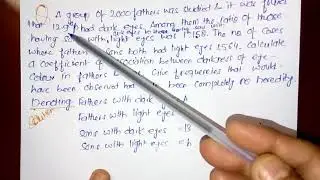 Q A group of 2000 fathers was studied & it was found
that 12.9% had dark eyes. Among them the ratio of those
having sons with dark eyes to those having sons with light eyes was 1:1.58. The no. of cases
where fathers & sons both had light eyes 1564. Calculate
a coefficient of association between darkness of eye
Colour in fathers &. Give frequencies that would
have been observed had been completely no heredity.
Denoting Fathers with dark A
Fathers with light
Sons with dark eyes = B
Sons with light eyes =